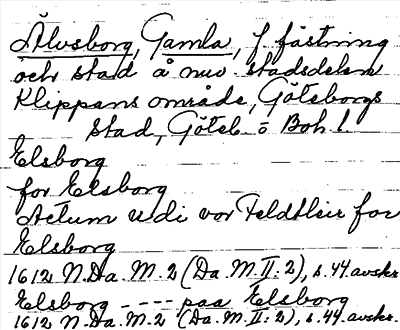 Älvsborg, Gamla, f fästning
och stad å nuv. stadsdelen
Klippans område, Göteborgs
stad, Göteb. o Boh. l.
Elsborg
for Elsborg
Actum udi vor Feldtleir for
Elsborg
1612 N.Da.M.2 (Da.M.II:2), s.44 avskr.
Elsborg ---- paa Elsborg
1612 N.Da.M.2 (Da.M.II:2), s.44 avskr.